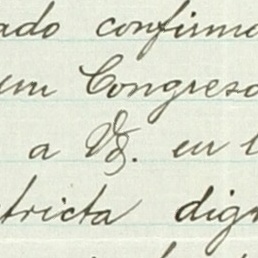 ado confirma
un Congreso
a Vd. en l
tricta dig